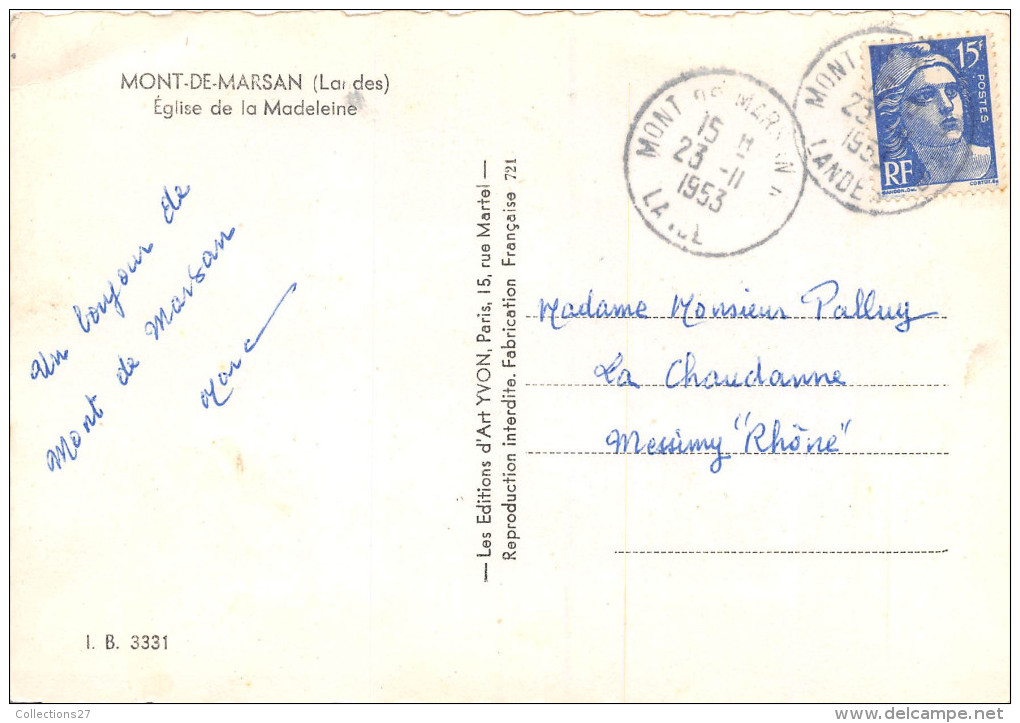 MONT-DE-MARSAN (Landes)
Église de la Madeleine
Un bonjour de
Mont de Marsan
Marc
I. B. 3331
Les Editions d'Art YVON, Paris, 15, rue Martel
Reproduction interdite. Fabrication Française 721
MONT DE MARSAN
15 H
23 -11
1953
LANDE
MONT
23
195
LANDE
15F
POSTES
RF
GANDON.
CORTOT.
Madame Monsieur Palluy
La Chaudanne
Messimy "Rhône"
Collections27
www.delcampe.net